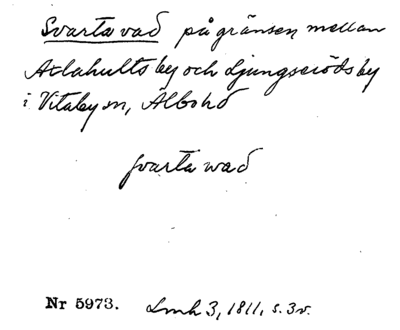 Svarta vad på gränsen mellan
Axlahults by och Ljungseröds by
i Vitaby sn, Albohd
svarta wad
Nr 5973. Lmh 3, 1811, s. 3v.